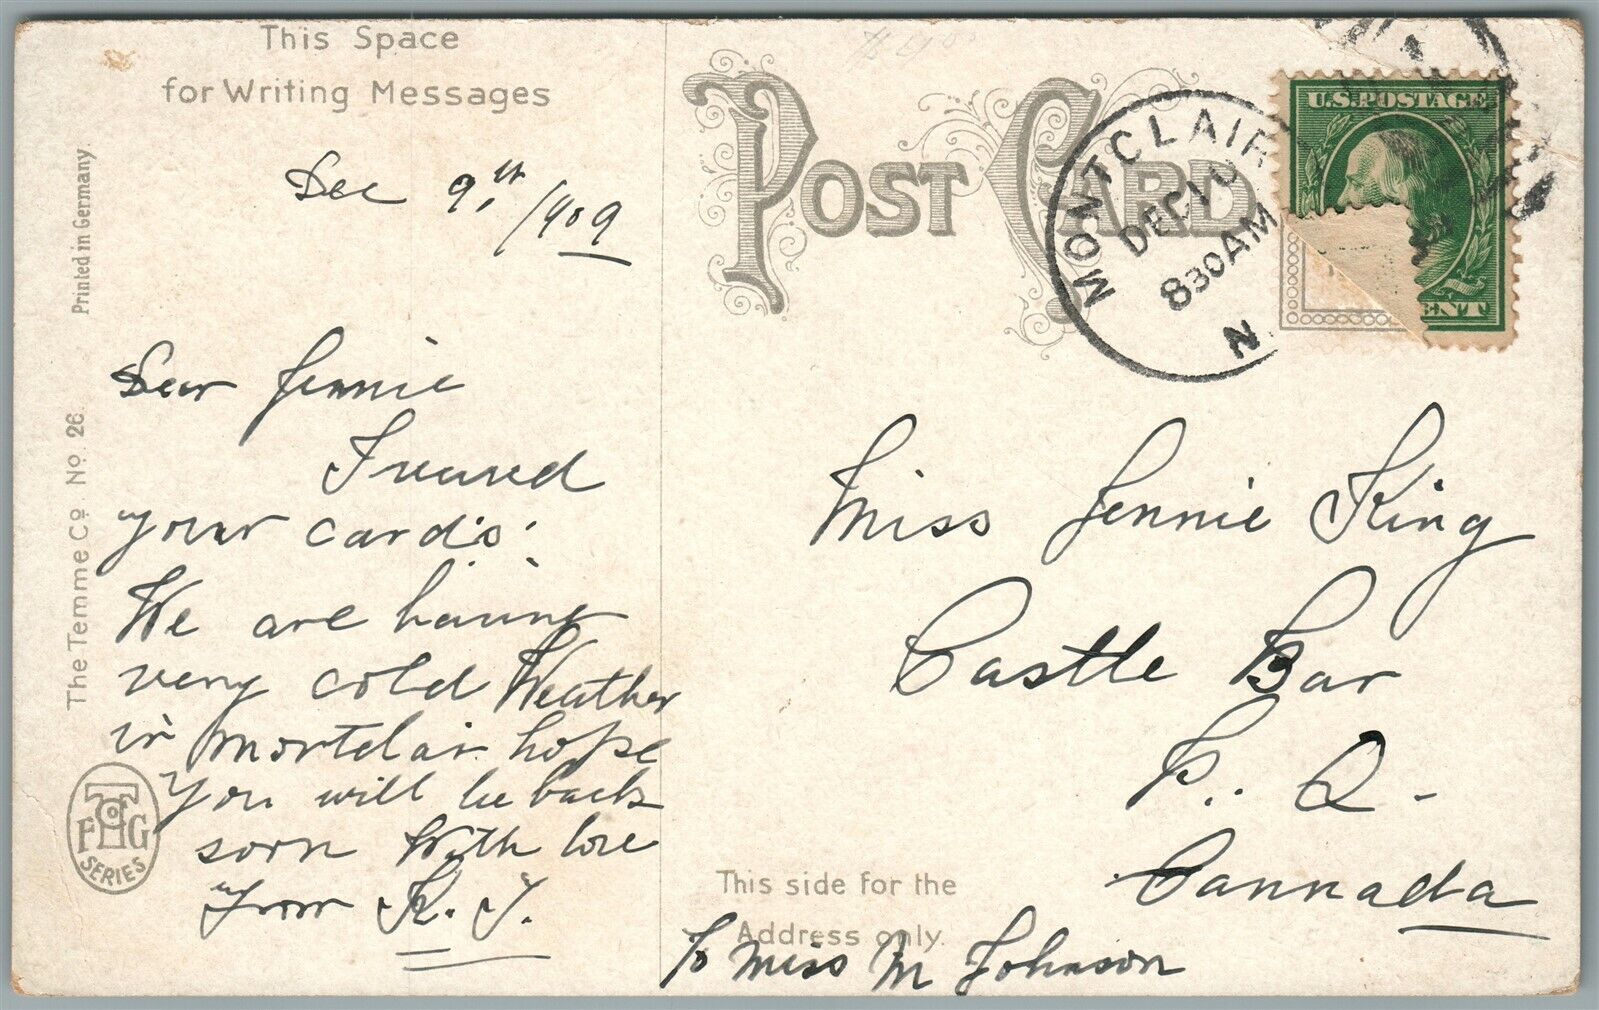 This Space
for Writing Messages
Dec 9th, 1909
Dear Jennie
I received
your cards.
We are having
very cold Weather
in Montclair hope
you will be back
soon With love
from K. J.
Printed in Germany.
The Temme Co No. 26
FHG
SERIES
POST CARD
MONTCLAIR
DEC 10
830AM
N.
U.S. POSTAGE
ENT
Miss Jennie King
Castle Bar
P. Q.
Cannada
This side for the
Address only.
To Miss M Johnson